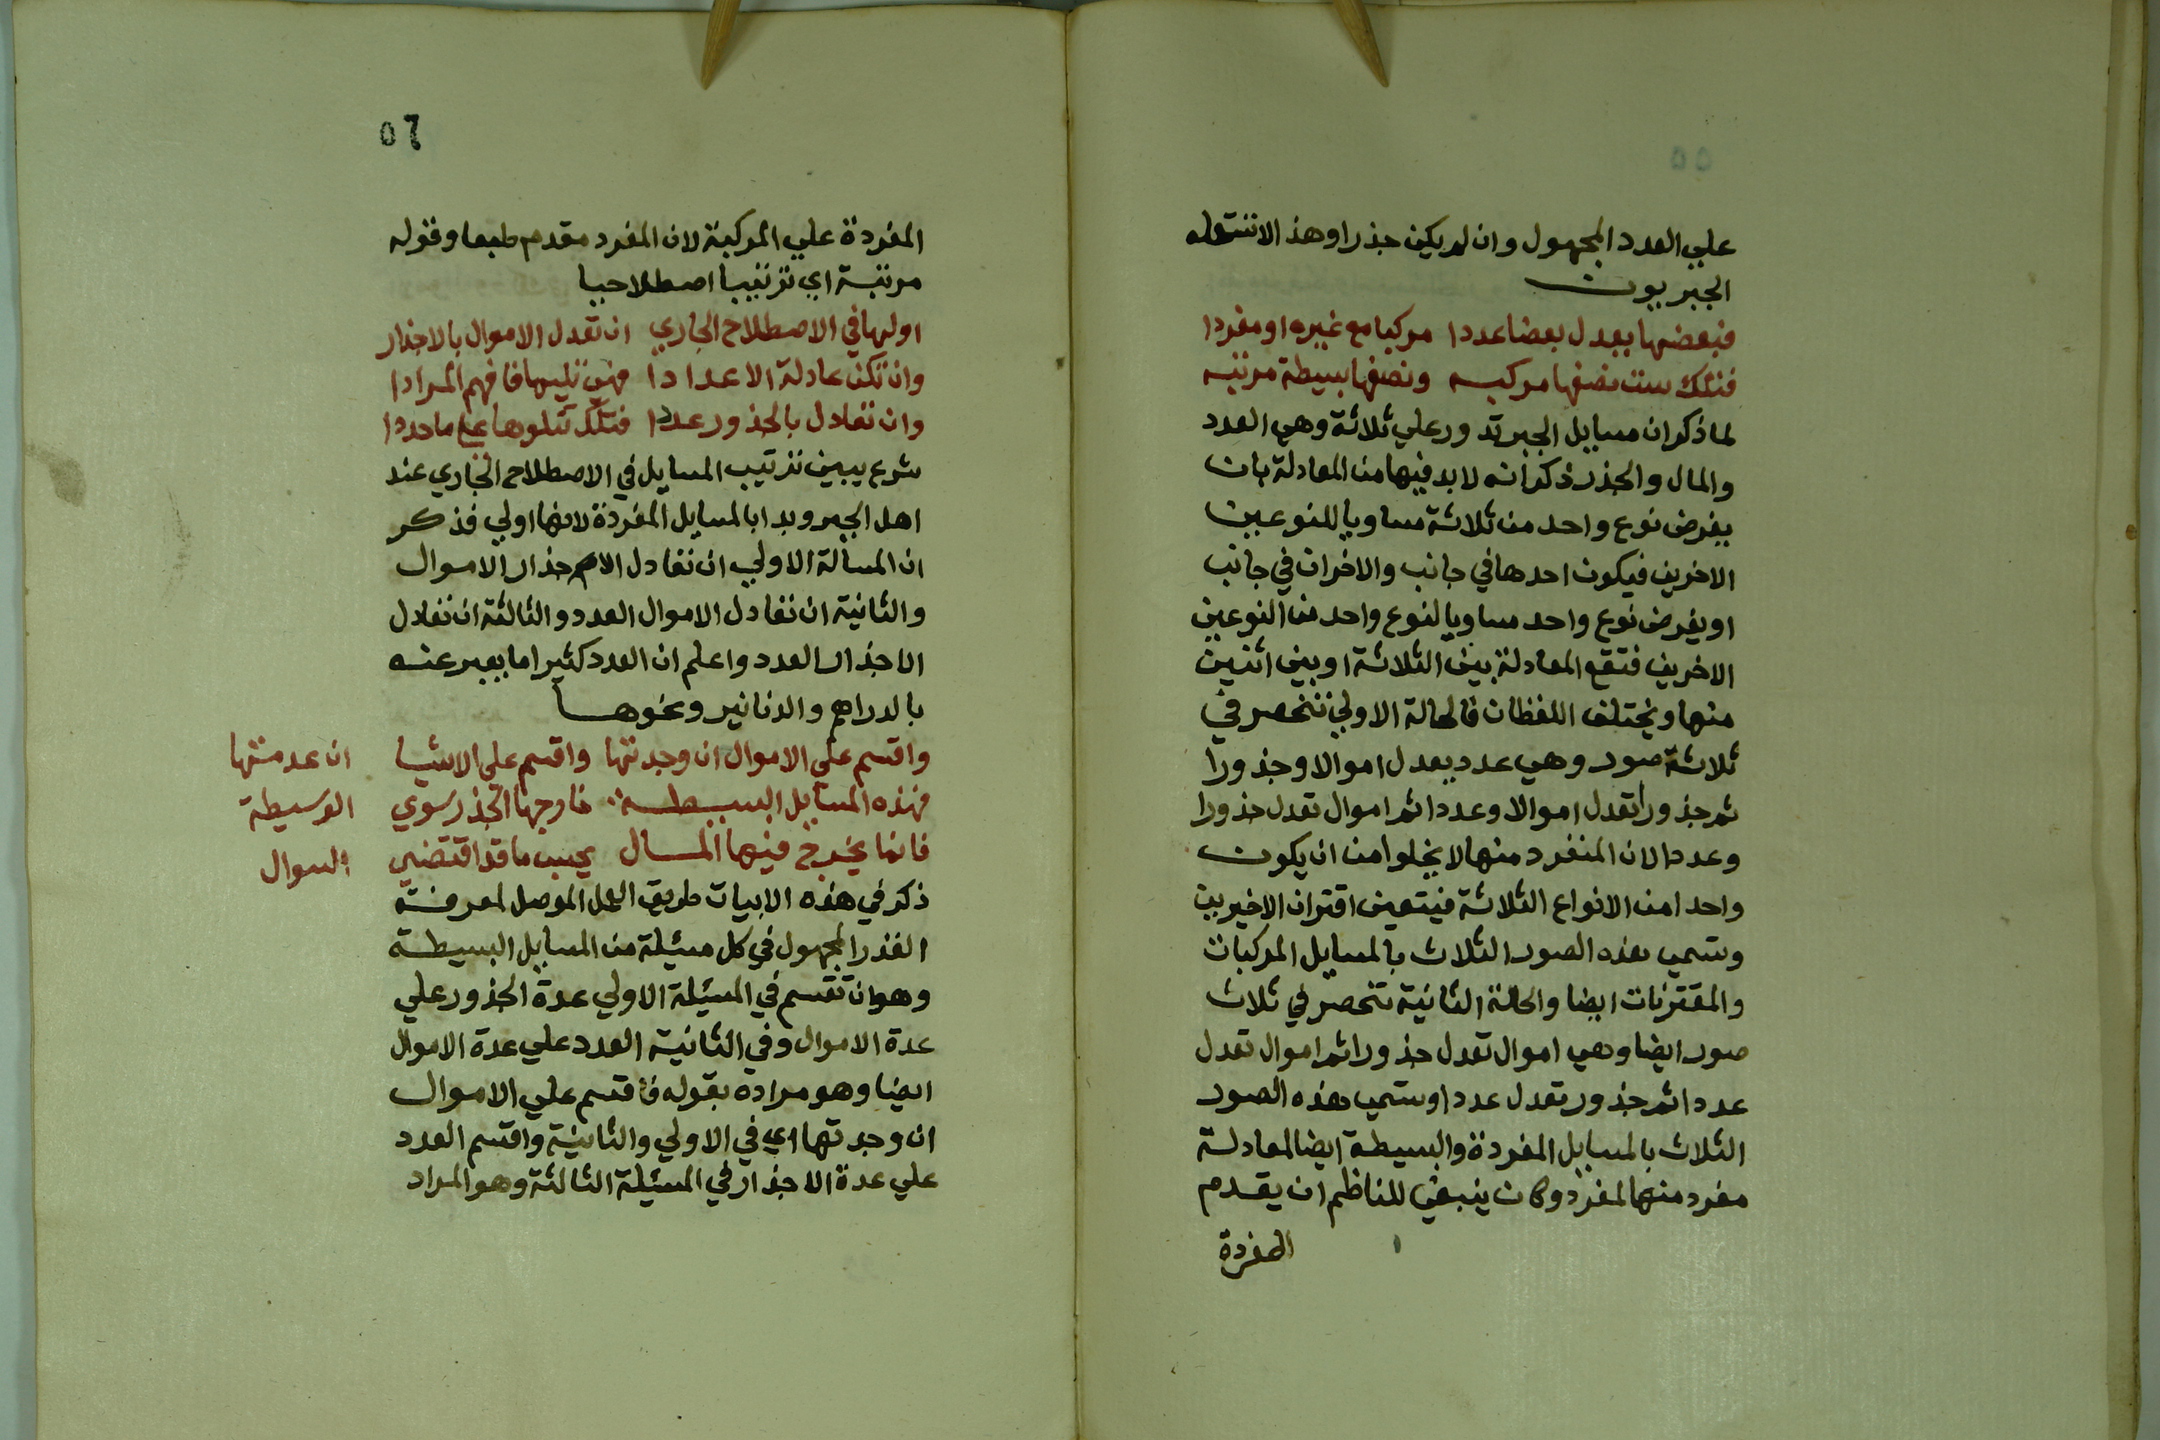 ٥٥
علي العدد المجهول وان لم يكن جذرا وهذا الاستعمله
الجبريون
فبعضها يعدل بعضا عددا مركبا مع غيره او مفردا
فتلك ست نصفها مركبه ونصفها بسيطة مرتبه
لما ذكر ان مسايل الجبر تدور علي ثلاثة وهي العدد
والمال والجذر ذكر انه لا بد فيها من المعادلة بان
يفرض نوع واحد من ثلاثة مساويا للنوعين
الاخرين فيكون احدها في جانب والاخران في جانب
او يفرض نوع واحد مساويا لنوع واحد من النوعين
الاخرين فتقع المعادلة بين الثلاثة او بين اثنين
منها ويختلف اللفظان فالحالة الاولي تنحصر في
ثلاثة صور وهي عدد يعدل اموالا وجذورا
ثم جذورا تعدل اموالا وعددا ثم اموال تعدل جذورا
وعددا لان المنفرد منها لا يخلوا من ان يكون
واحدا من الانواع الثلاثة فيتعين اقتران الاخيرين
وتسمي هذه الصور الثلاث بالمسايل المركبات
والمقترنات ايضا والحالة الثانية تنحصر في ثلاث
صور ايضا وهي اموال تعدل جذورا ثم اموال تعدل
عددا ثم جذور تعدل عددا وتسمي هذه الصور
الثلاث بالمسايل المفردة والبسيطة ايضا لمعادلة
مفرد منها لمفرد وكان ينبغي للناظم ان يقدم
المفردة
٥٦
المفردة علي المركبة لان المفرد مقدم طبعا وقوله
مرتبة اي ترتيبا اصطلاحيا
اولها في الاصطلاح الجاري ان تعدل الاموال بالاجذار
وان تكن عادلة الاعدادا فهي تليها فافهم المرادا
وان تعادل بالجذور عددا فتلك تتلوها علي ما حددا
شرع يبين ترتيب المسايل في الاصطلاح الجاري عند
اهل الجبر وبدا بالمسايل المفردة لانها اولي فذكر
ان المسالة الاولي ان تعادل الاجذار الاموال
والثانية ان تعادل الاموال العدد والثالثة ان تعادل
الاجذار العدد واعلم ان العدد كثيرا ما يعبر عنه
بالدراهم والدنانير ونحوها
واقسم علي الاموال ان وجدتها واقسم علي الاشيا ان عدمتها
فهذه المسايل البسيطة خارجها الجذر سوي الوسيطة
فانما يخرج فيها المال بحسب ما قد اقتضي السوال
ذكر في هذه الابيات طريق العمل الموصل لمعرفة
القدر المجهول في كل مسيلة من المسايل البسيطة
وهو ان تقسم في المسيلة الاولي عدة الجذور علي
عدة الاموال وفي الثانية العدد علي عدة الاموال
ايضا وهو مراده بقوله فاقسم علي الاموال
ان وجدتها اي في الاولي والثانية واقسم العدد
علي عدة الاجذار في المسيلة الثالثة وهو المراد